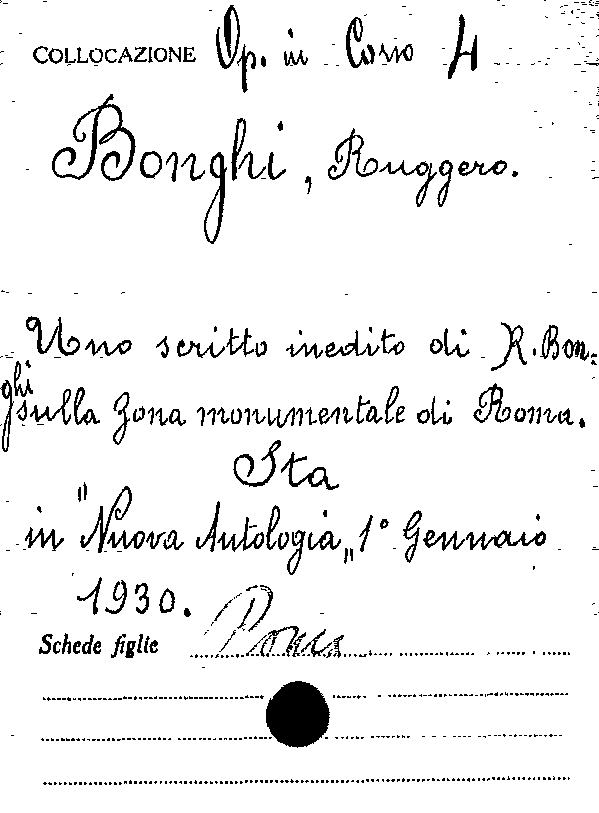 COLLOCAZIONE Op. in Corso 4
Bonghi, Ruggero.
Uno scritto inedito di R. Bon-
ghi sulla Zona monumentale di Roma.
Sta
in "Nuova Antologia„ 1° Gennaio
1930.
Schede figlie Roma